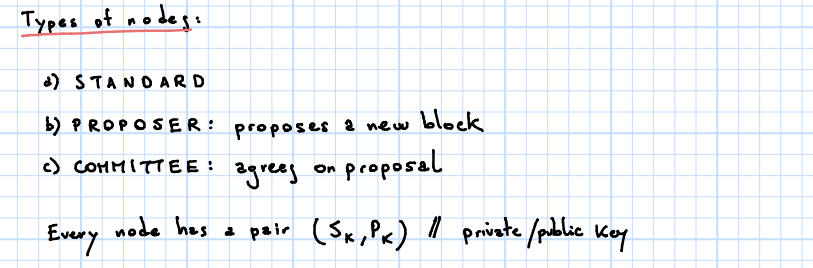 Types of nodes:
a) STANDARD
b) PROPOSER: proposes a new block
c) COMMITTEE: agrees on proposal
Every node has a pair (SK, PK) // private/public key